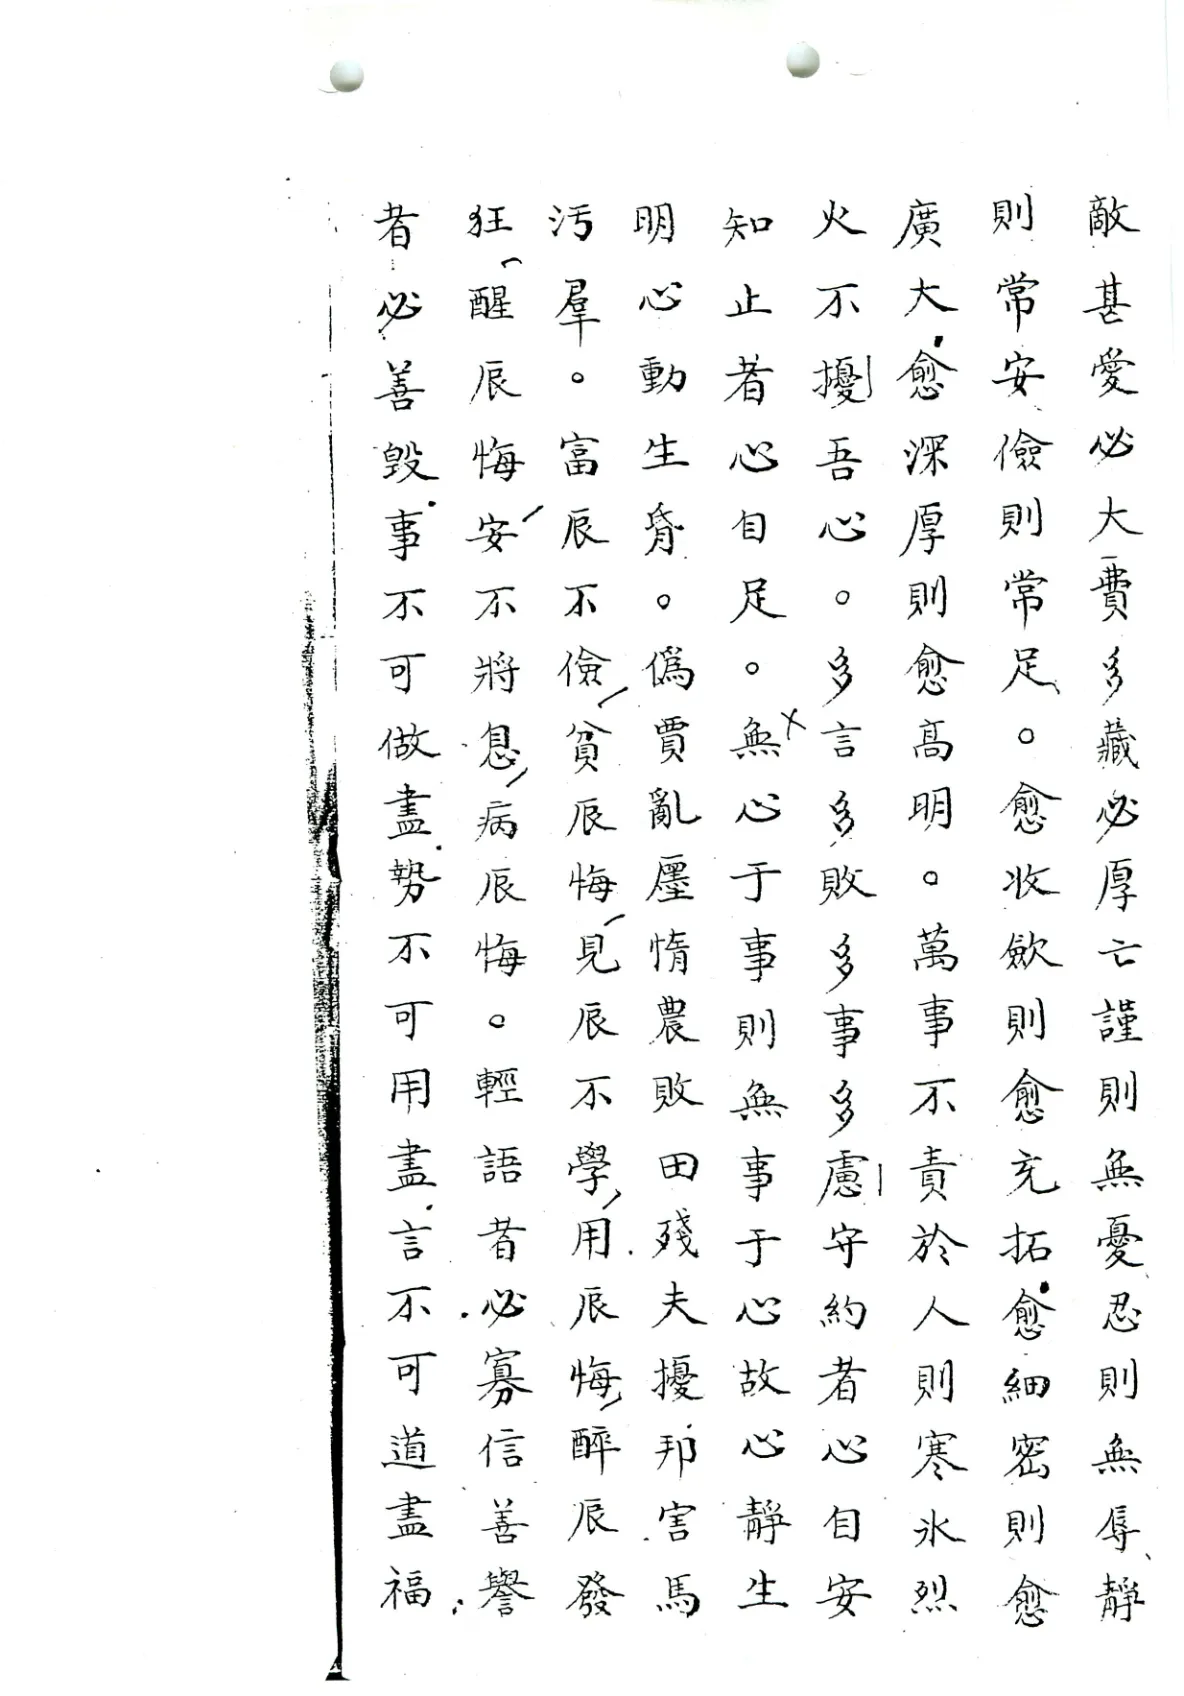 敵甚愛必大費多藏必厚亡謹則無憂忍則無辱靜
則常安儉則常足。愈收歛則愈充拓愈細密則愈
廣大愈深厚則愈高明。萬事不責於人則寒氷烈
火不擾吾心。多言多敗多事多慮守約者心自安
知止者心自足。無心于事則無事于心故心靜生
明心動生脋。偽賈亂廛惰農敗田殘夫擾邦害馬
污羣。富辰不儉貧辰悔見辰不學用辰悔醉辰發
狂醒辰悔安不將息病辰悔。輕語者必寡信善譽
者必善毀事不可做盡勢不可用盡言不可道盡福